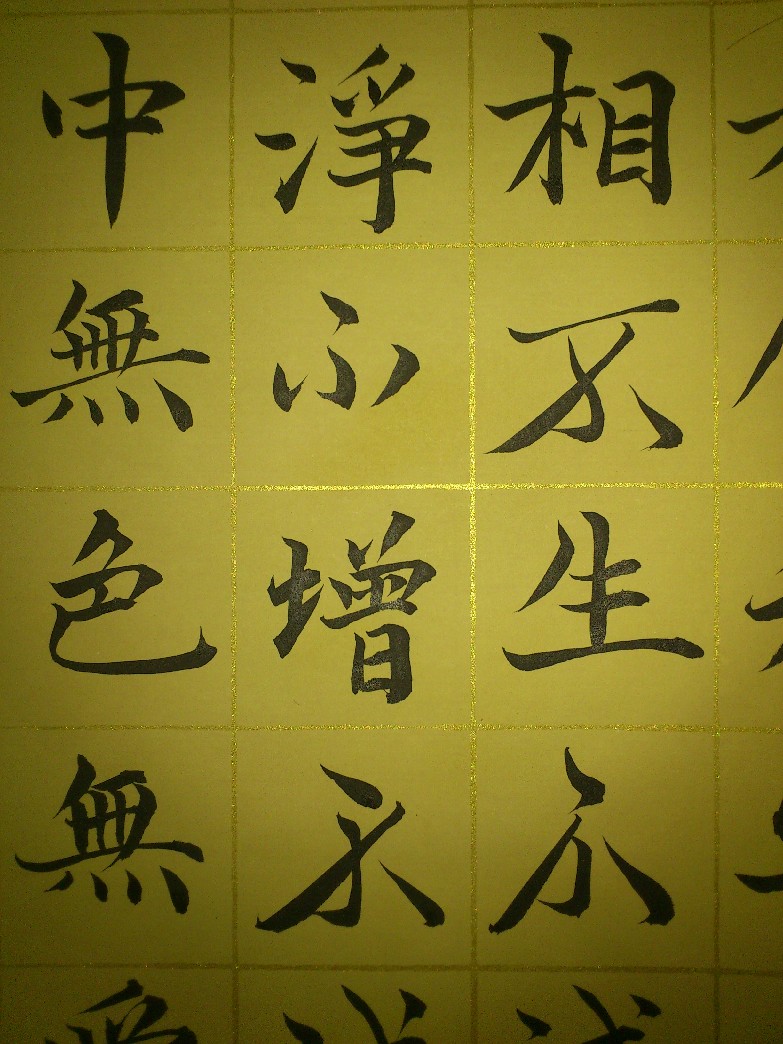 相不生不
淨不增不
中無色無